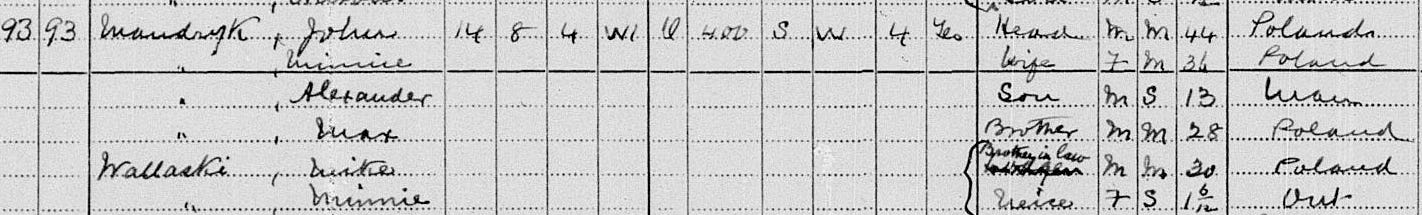 93 93 Mandryk, John 14 8 4 W1 O 400 S W 4 Yes Head M M 44 Poland
" , Minnie Wife F M 36 Poland
" , Alexander Son M S 13 Man
" , Max Brother M M 28 Poland
Wallaski , Mike Brother in law M M 30 Poland
" , Minnie Neice F S 1 6/12 Ont